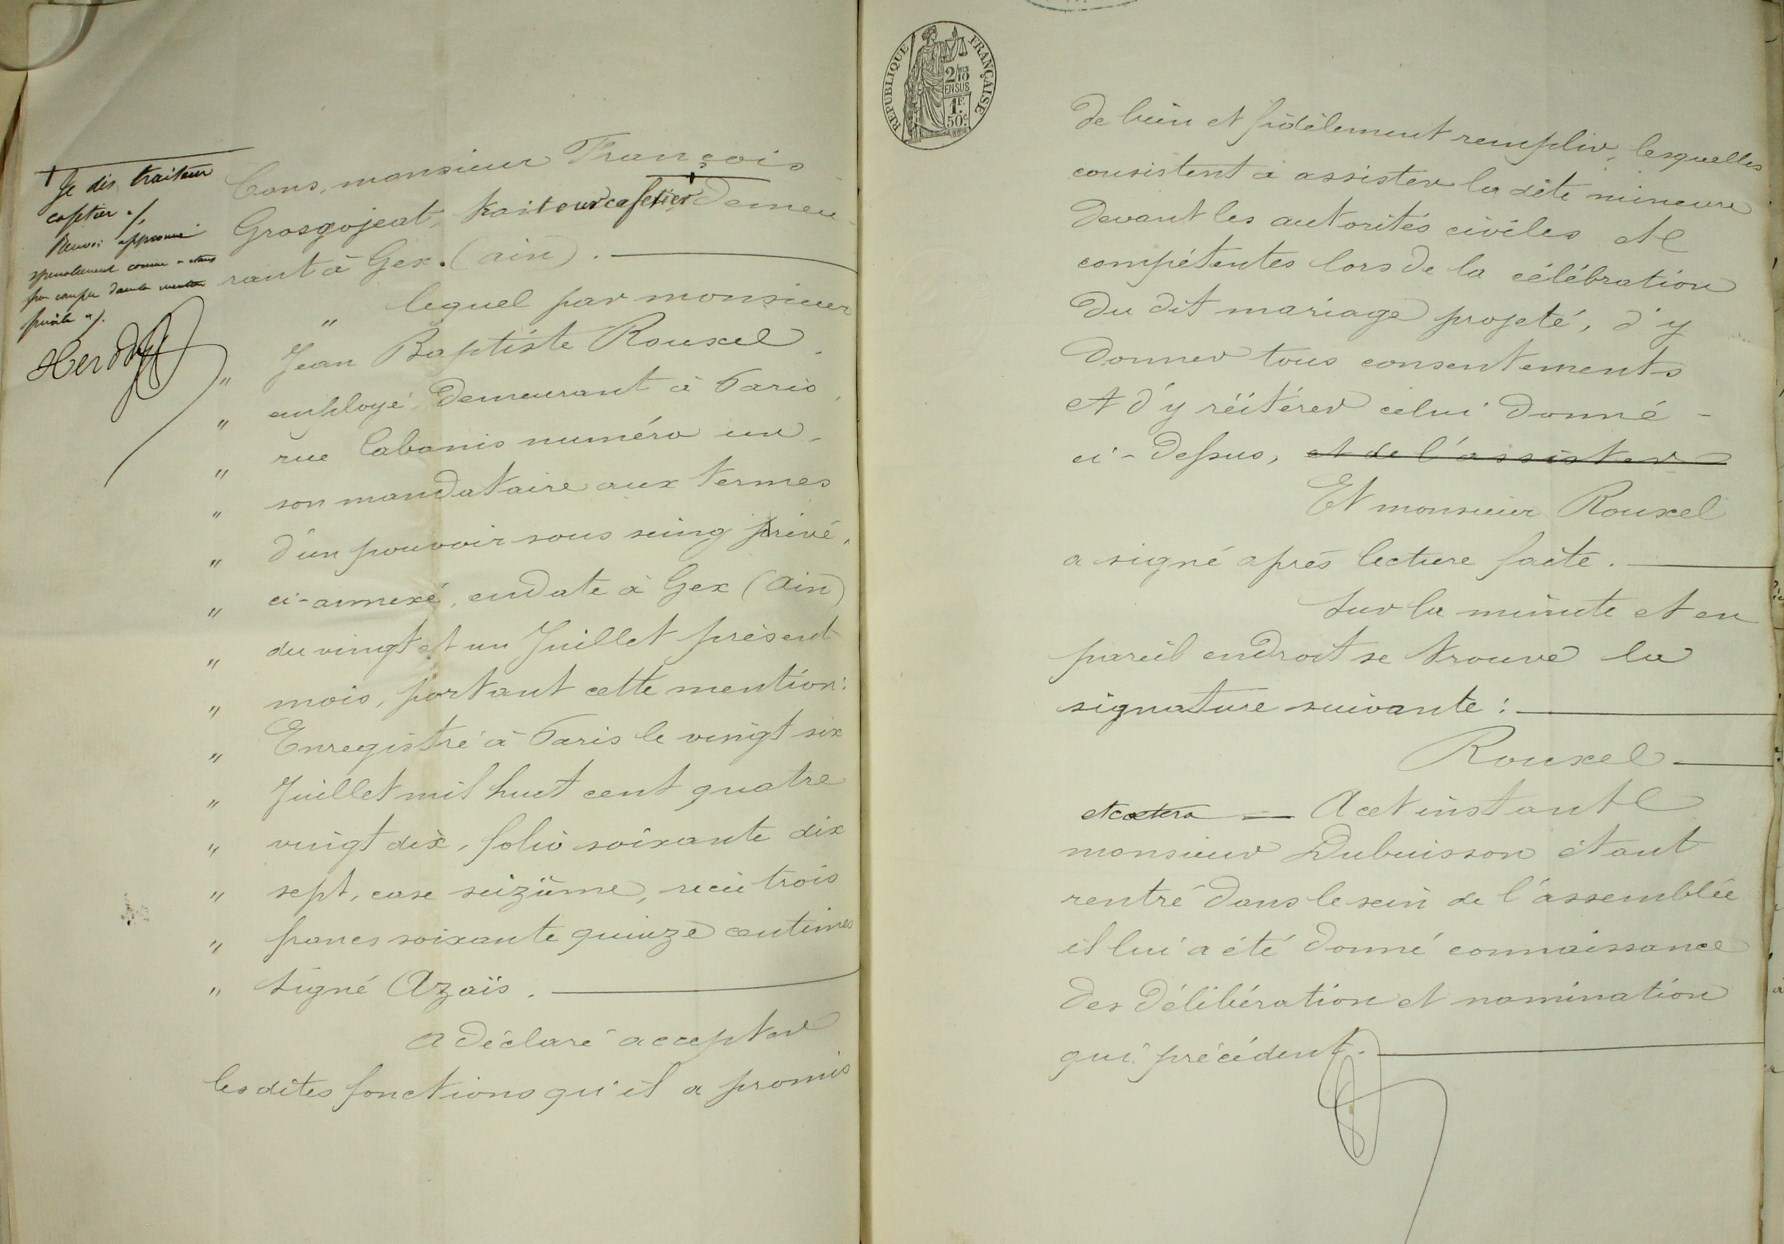 + Je dis traiteur
caftier ./.
Renvoi approuvé
spécialement comme
privée ./.
Cons, monsieur François
Grosgojeat, traiteur cafetier, demeu-
rant à Gex. (ain).
" lequel par monsieur
" Jean Baptiste Rouxel
" employé, demeurant à Paris,
" rue Cabanis numéro un,
" son mandataire aux termes
" d'un pouvoir sous seing privé,
" ci-annexé, en date à Gex (Ain)
" du vingt et un Juillet présent
" mois, portant cette mention:
" Enregistré à Paris le vingt six
" Juillet mil huit cent quatre
" vingt dix, folio soixante dix
" sept, case seizième, reçu trois
" francs soixante quinze centimes
" signé Azaïs.
a déclaré accepter
les dites fonctions qu'il a promis
RÉPUBLIQUE FRANÇAISE
2/10
EN SUS
1F
50c
de bien et fidèlement remplir, lesquelles
consistent à assister la dite mineure
devant les autorités civiles et
compétentes lors de la célébration
du dit mariage projeté, d'y
donner tous consentements
et d'y réitérer celui donné -
ci-dessus, et de l'assister
Et monsieur Rouxel
a signé après lecture faite.
Sur la minute et en
pareil endroit se trouve la
signature suivante :
Rouxel
etcœtera — A cet instant
monsieur Dubuisson étant
rentré dans le sein de l'assemblée
il lui a été donné connaissance
des délibération et nomination
qui précédent.